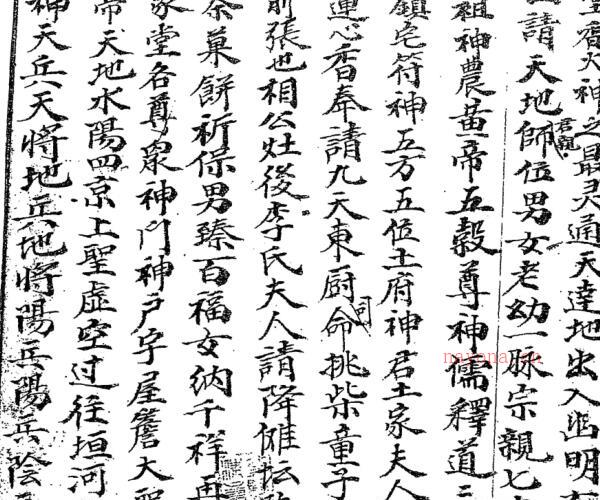 香火神之最灵通天達地出入幽明
請天地君親師位男女老幼一脉宗親七
祖神農黄帝五穀尊神儒釋道三
鎮宅符神五方五位土府神君土家夫人
運心香奉請九天東厨司命挑柴童子
前張也相公灶後李氏夫人請降傩坛
茶菓餅祈保男臻百福女納千祥再
家堂各尊眾神门神户字屋簷大聖
帝天地水陽四京上聖虚空过往垣河
神天兵天將地兵地將陽兵陽兵陰
nayona.cn